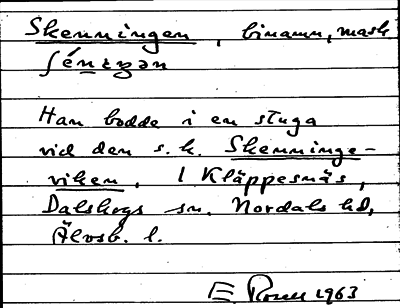 Skenningen, binamn, mask
ʃénıŋən
Han bodde i en stuga
vid den s. k. Skenninge-
viken, i Kläppesnäs,
Dalskogs sn, Nordals hd,
Älvsb. l.
E 1963